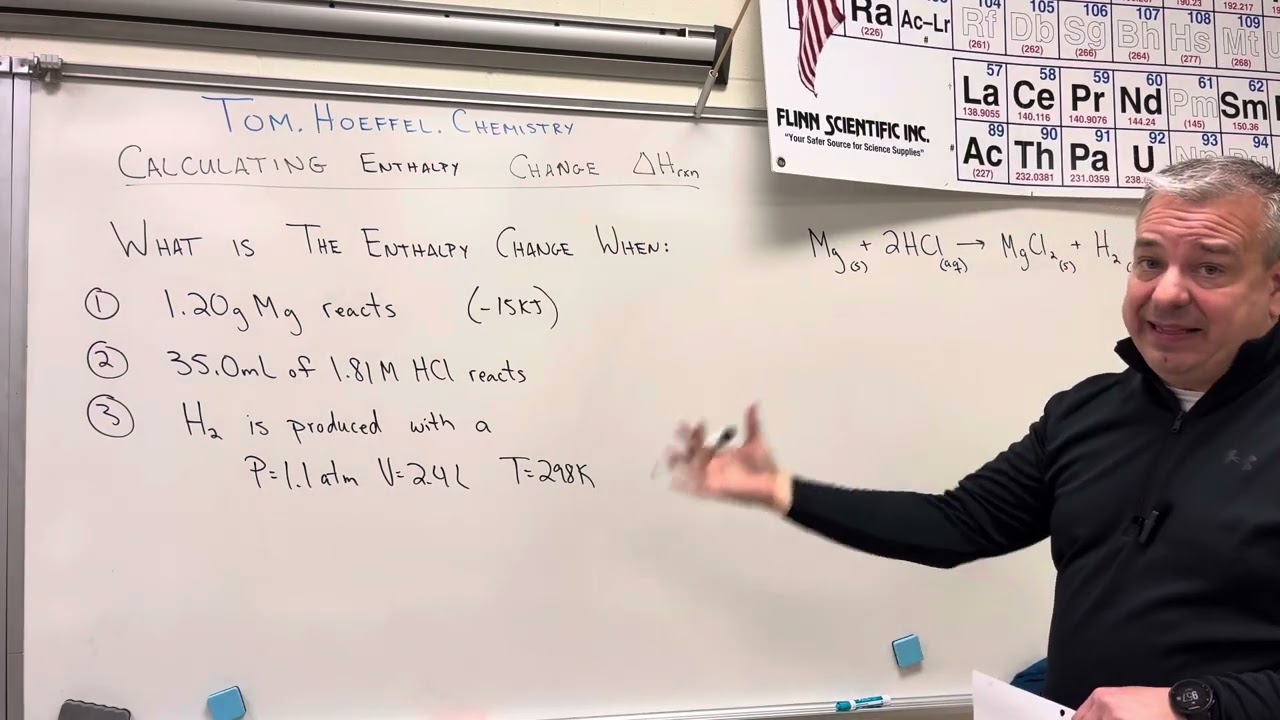 TOM. HOEFFEL. CHEMISTRY
CALCULATING ENTHALPY CHANGE ΔHrxn
WHAT IS THE ENTHALPY CHANGE WHEN:
① 1.20g Mg reacts (-15KJ)
② 35.0mL of 1.81M HCl reacts
③ H₂ is produced with a
P=1.1atm V=2.4L T=298K
Mg(s) + 2HCl(aq) → MgCl₂(s) + H₂
190.23 192.217
104 105 106 107 108 109
Ra Ac–Lr Rf Db Sg Bh Hs Mt
(226) # (261) (262) (266) (264) (277) (268)
57 58 59 60 61 62
La Ce Pr Nd Pm Sm
138.9055 140.116 140.9076 144.24 (145) 150.36
89 90 91 92 93 94
Ac Th Pa U
(227) 232.0381 231.0359 238.
FLINN SCIENTIFIC INC.
"Your Safer Source for Science Supplies"